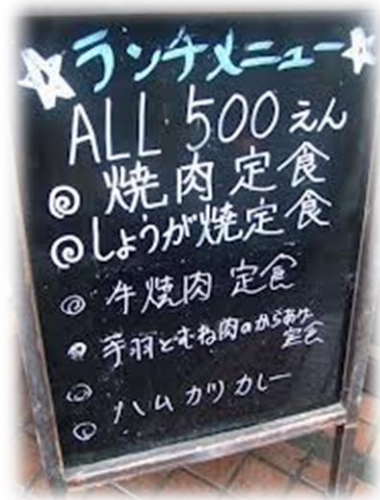 ランチメニュー
ALL 500えん
焼肉定食
しょうが焼定食
牛焼肉定食
手羽とむね肉のからあげ
定食
ハムカツカレー